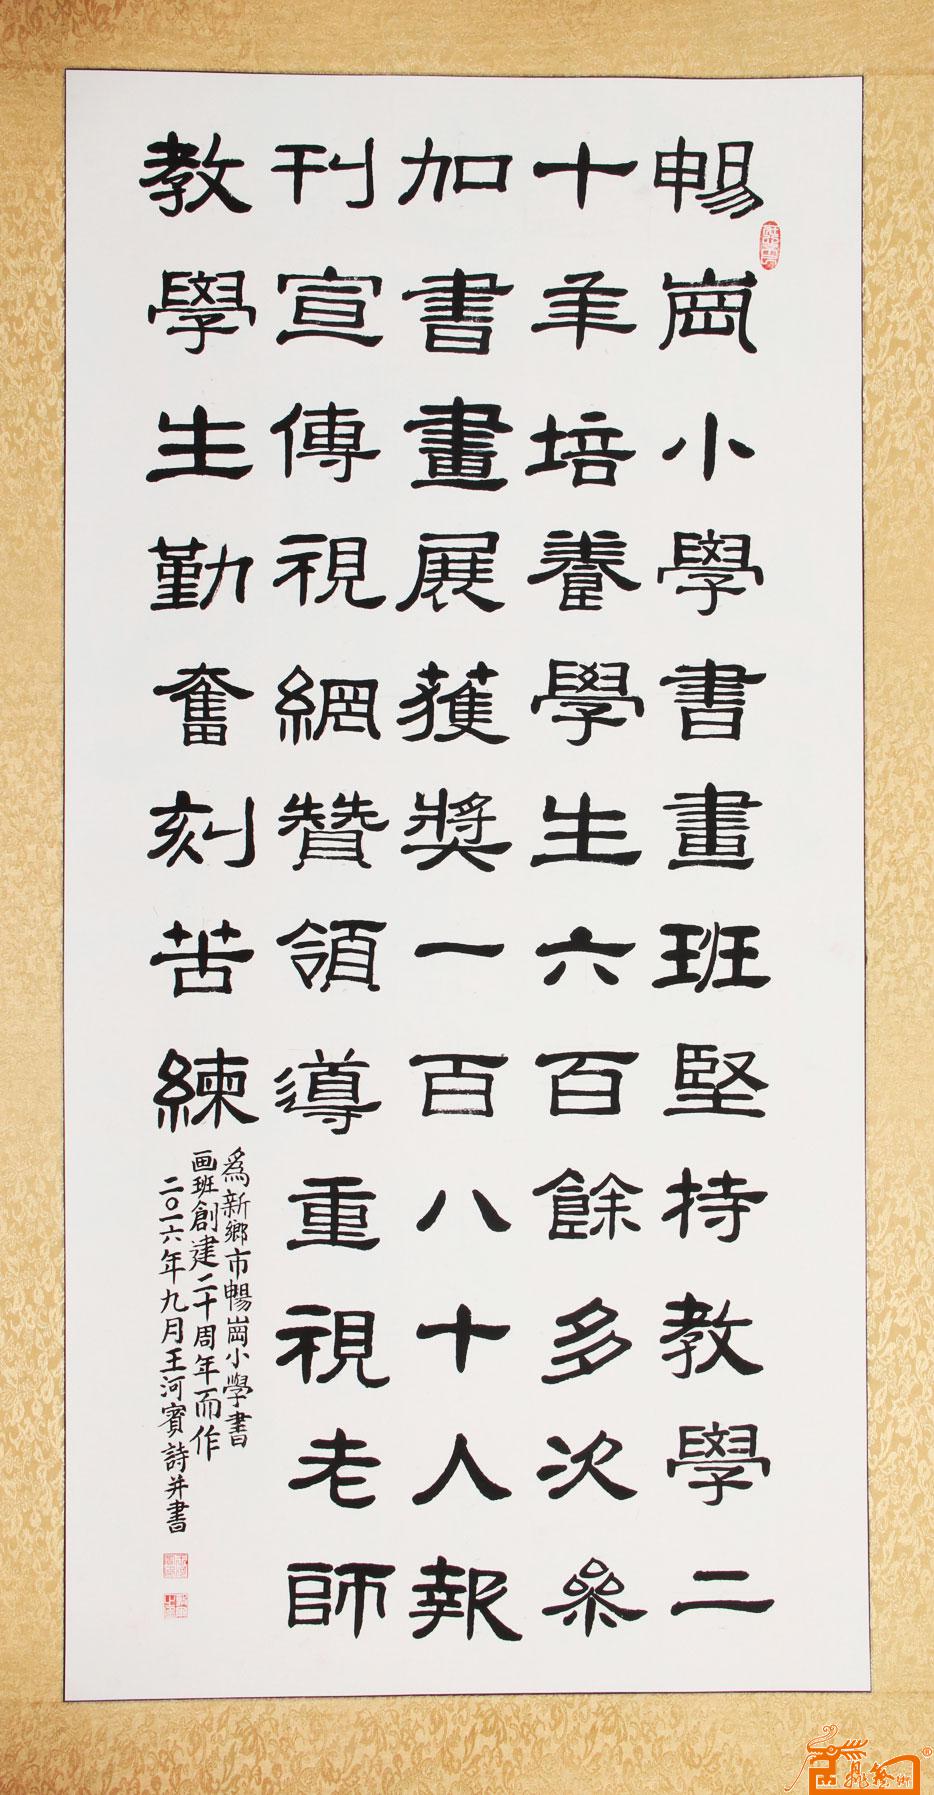 暢崗小學書畫班堅持教學二
十年培養學生六百餘多次參
加書畫展獲獎一百八十人報
刊宣傳視網贊領導重視老師
教學生勤奮刻苦練
為新鄉市暢崗小學書
画班創建二十周年而作
二〇一六年九月王河賓詩并書